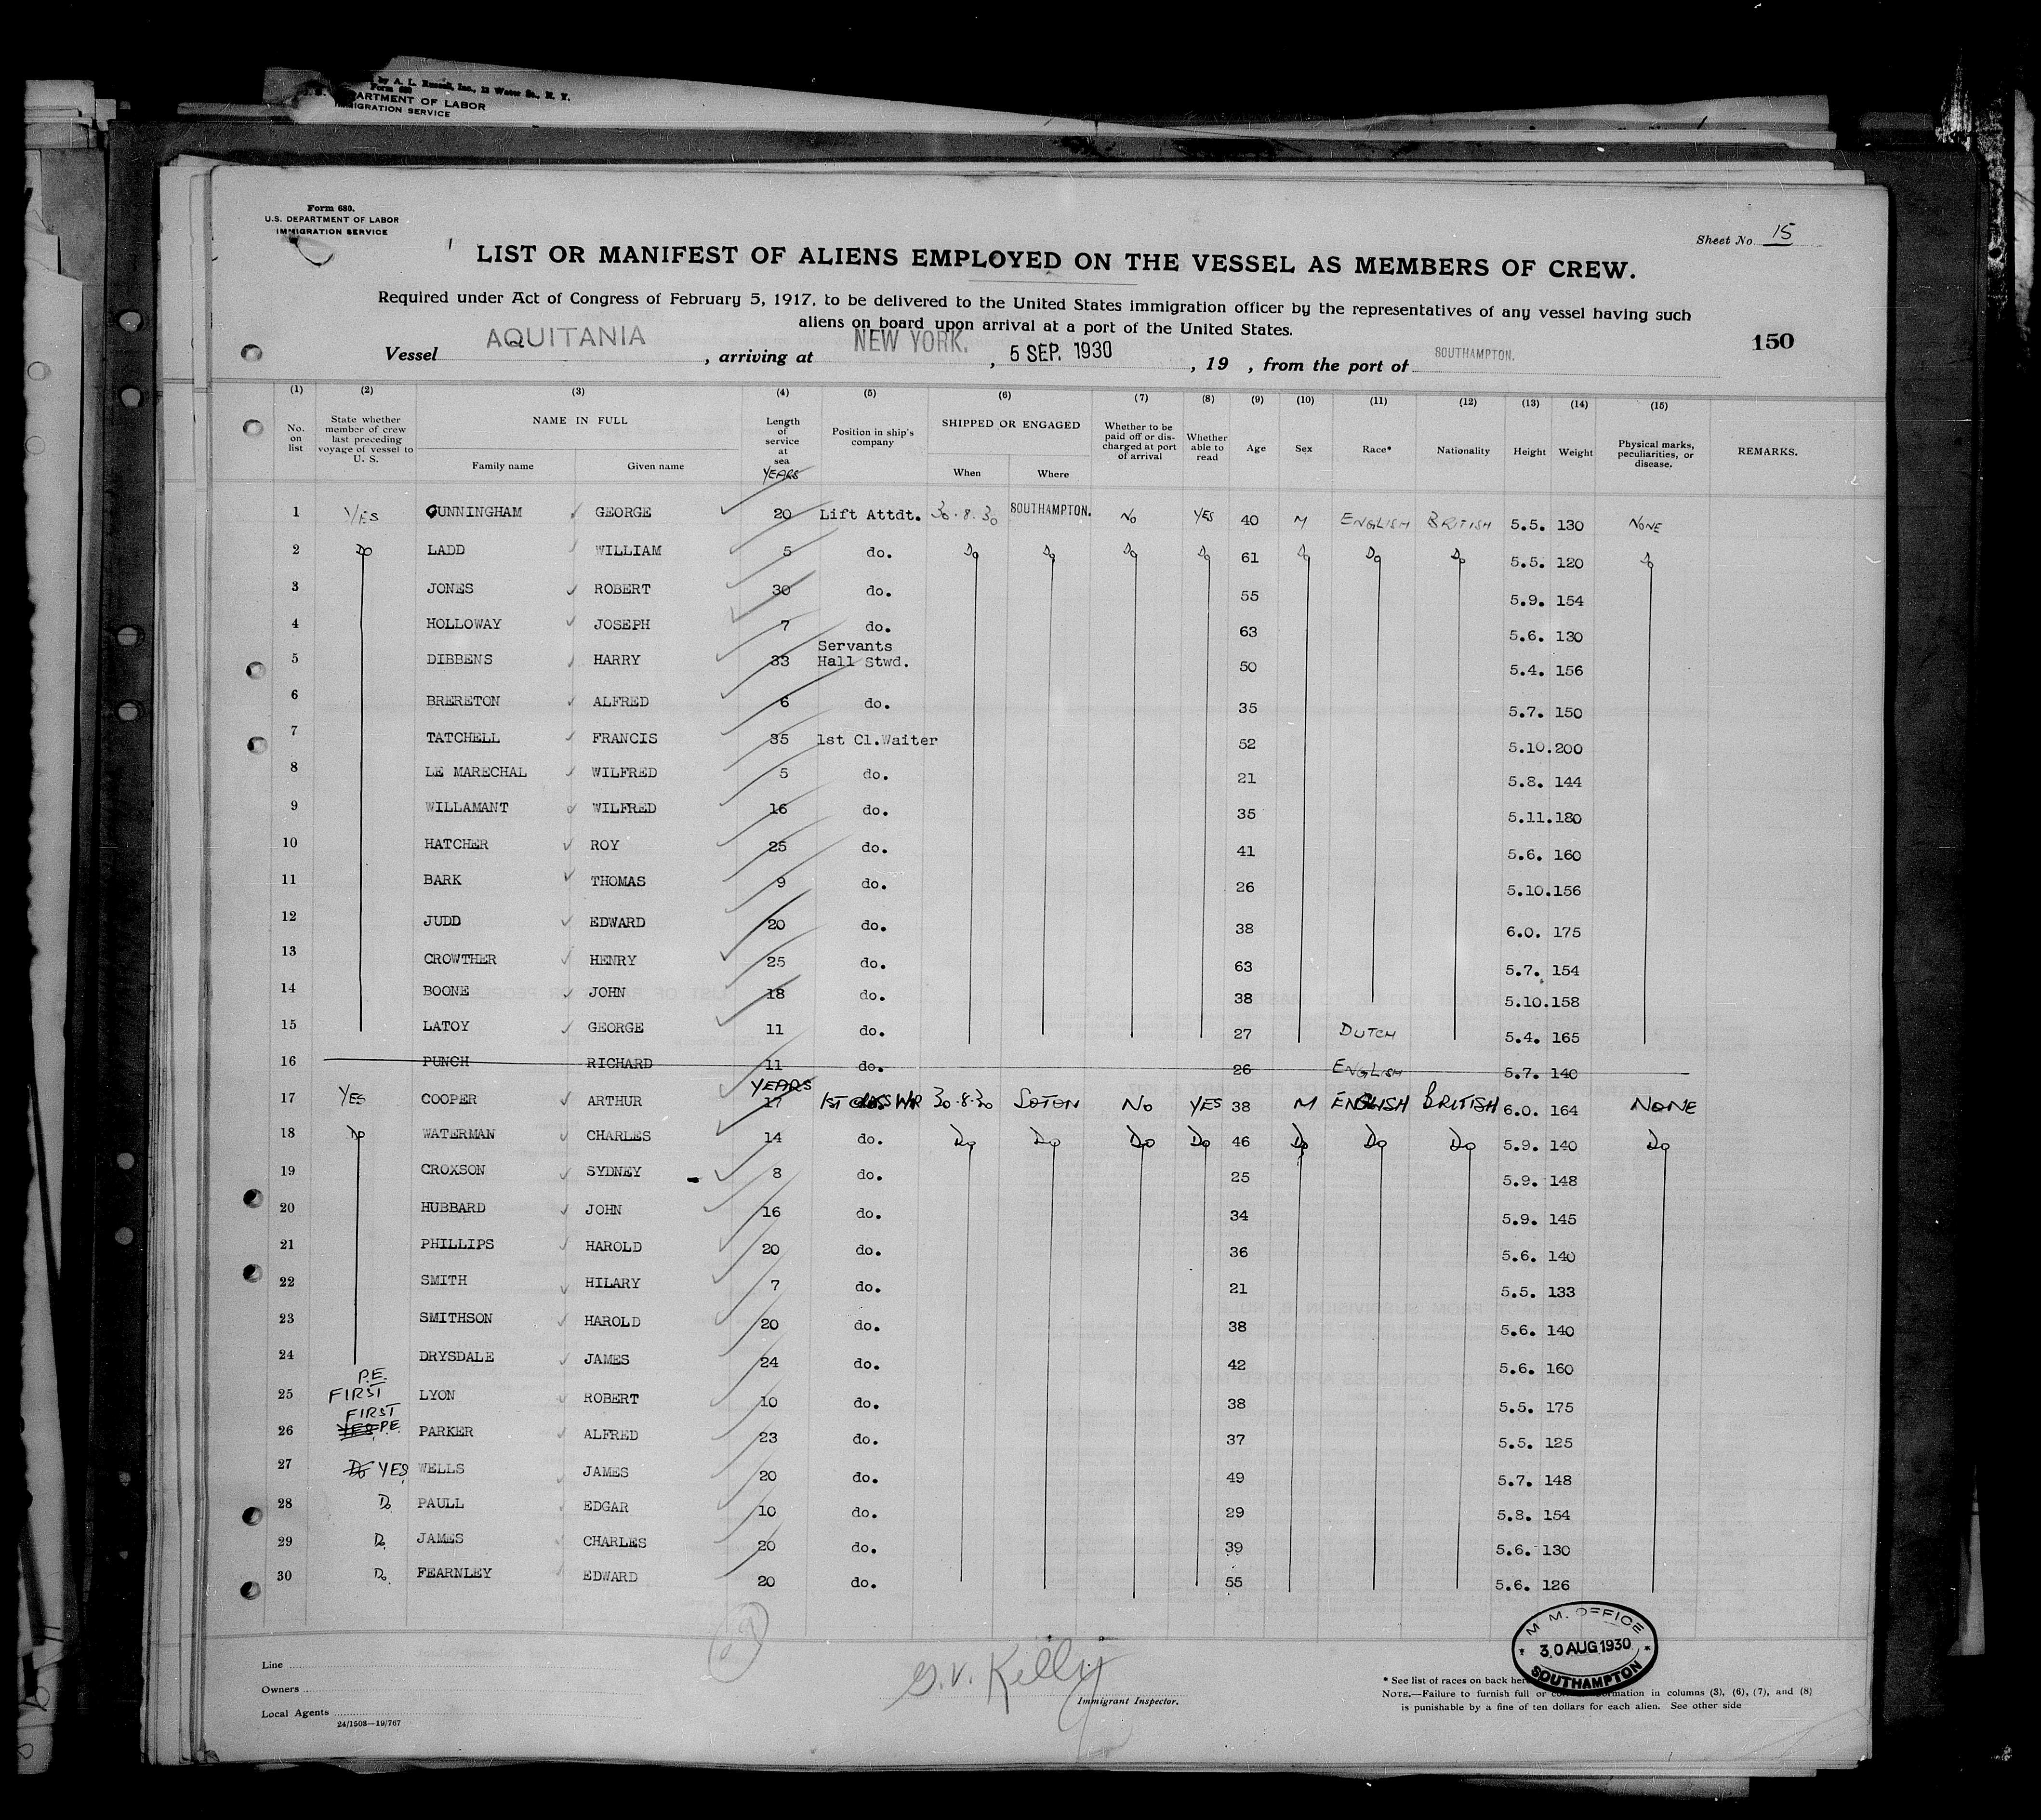 by A. L. Russell, Inc., 12 Water St., N. Y.
Form 680
DEPARTMENT OF LABOR
IMMIGRATION SERVICE
Form 680.
U.S. DEPARTMENT OF LABOR
IMMIGRATION SERVICE
Sheet No. 15
LIST OR MANIFEST OF ALIENS EMPLOYED ON THE VESSEL AS MEMBERS OF CREW.
Required under Act of Congress of February 5, 1917, to be delivered to the United States immigration officer by the representatives of any vessel having such
aliens on board upon arrival at a port of the United States.
150
Vessel AQUITANIA, arriving at NEW YORK., 5 SEP. 1930, 19 , from the port of SOUTHAMPTON.
(1) (2) (3) (4) (5) (6) (7) (8) (9) (10) (11) (12) (13) (14) (15)
No. on list State whether member of crew last preceding voyage of vessel to U. S. NAME IN FULL Family name Given name Length of service at sea YEARS Position in ship's company SHIPPED OR ENGAGED When Where Whether to be paid off or discharged at port of arrival Whether able to read Age Sex Race* Nationality Height Weight Physical marks, peculiarities, or disease. REMARKS.
1 YES CUNNINGHAM GEORGE 20 Lift Attdt. 30.8.30 SOUTHAMPTON. No YES 40 M ENGLISH BRITISH 5.5. 130 NONE
2 Do LADD WILLIAM 5 do. Do Do Do Do 61 Do Do Do 5.5. 120 Do
3 JONES ROBERT 30 do. 55 5.9. 154
4 HOLLOWAY JOSEPH 7 do. 63 5.6. 130
5 DIBBENS HARRY 33 Servants Hall Stwd. 50 5.4. 156
6 BRERETON ALFRED 6 do. 35 5.7. 150
7 TATCHELL FRANCIS 35 1st Cl.Waiter 52 5.10. 200
8 LE MARECHAL WILFRED 5 do. 21 5.8. 144
9 WILLAMANT WILFRED 16 do. 35 5.11. 180
10 HATCHER ROY 25 do. 41 5.6. 160
11 BARK THOMAS 9 do. 26 5.10. 156
12 JUDD EDWARD 20 do. 38 6.0. 175
13 CROWTHER HENRY 25 do. 63 5.7. 154
14 BOONE JOHN 18 do. 38 5.10. 158
15 LATOY GEORGE 11 do. 27 DUTCH 5.4. 165
16 PUNCH RICHARD 11 do. 26 ENGLISH 5.7. 140
17 YES COOPER ARTHUR YEARS 17 1ST CLASS WR 30.8.30 SOTON No YES 38 M ENGLISH BRITISH 6.0. 164 NONE
18 Do WATERMAN CHARLES 14 do. Do Do Do Do 46 Do Do Do 5.9. 140 Do
19 CROXSON SYDNEY 8 do. 25 5.9. 148
20 HUBBARD JOHN 16 do. 34 5.9. 145
21 PHILLIPS HAROLD 20 do. 36 5.6. 140
22 SMITH HILARY 7 do. 21 5.5. 133
23 SMITHSON HAROLD 20 do. 38 5.6. 140
24 DRYSDALE JAMES 24 do. 42 5.6. 160
25 P.E. FIRST LYON ROBERT 10 do. 38 5.5. 175
26 FIRST YES P.E. PARKER ALFRED 23 do. 37 5.5. 125
27 Do YES WELLS JAMES 20 do. 49 5.7. 148
28 Do PAULL EDGAR 10 do. 29 5.8. 154
29 Do JAMES CHARLES 20 do. 39 5.6. 130
30 Do. FEARNLEY EDWARD 20 do. 55 5.6. 126
M. M. OFFICE
30 AUG 1930
SOUTHAMPTON
Line
Owners
Local Agents
24/1503—19/767
G.V. Kelly
Immigrant Inspector.
* See list of races on back here
NOTE.—Failure to furnish full or information in columns (3), (6), (7), and (8)
is punishable by a fine of ten dollars for each alien. See other side